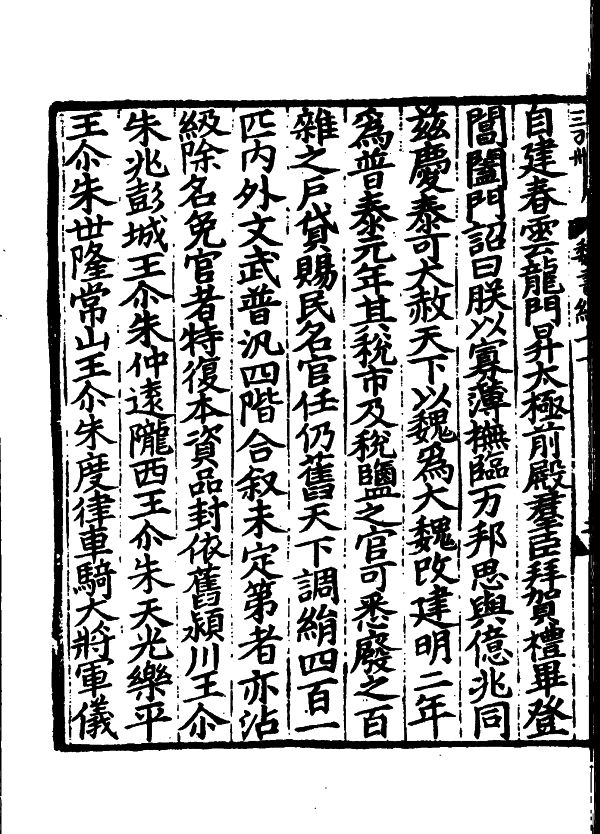 自建春雲龍門昇太極前殿羣臣拜賀禮畢登
閶闔門詔曰朕以寡薄撫臨万邦思與億兆同
茲慶泰可大赦天下以魏為大魏改建明二年
為普泰元年其稅市及稅鹽之官可悉廢之百
雜之戶貸賜民名官任仍舊天下調絹四百一
匹內外文武普汎四階合叙未定第者亦沾
級除名免官者特復本資品封依舊潁川王尒
朱兆彭城王尒朱仲遠隴西王尒朱天光樂平
王尒朱世隆常山王尒朱度律車騎大將軍儀